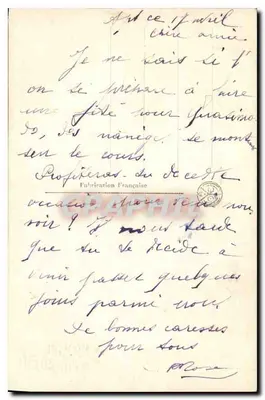 Apt ce 17 avril
chère amie
Je ne sais si l'
on se prépare à faire
une fête pour quasimo
do, des manèges se montent
sur le cours.
Profiteras-tu de cette
Fabrication Française
occasion pour venir nous
voir? Il nous tarde
que tu te décide à
venir passer quelques
jours parmi nous
De bonnes caresses
pour tous
Rose